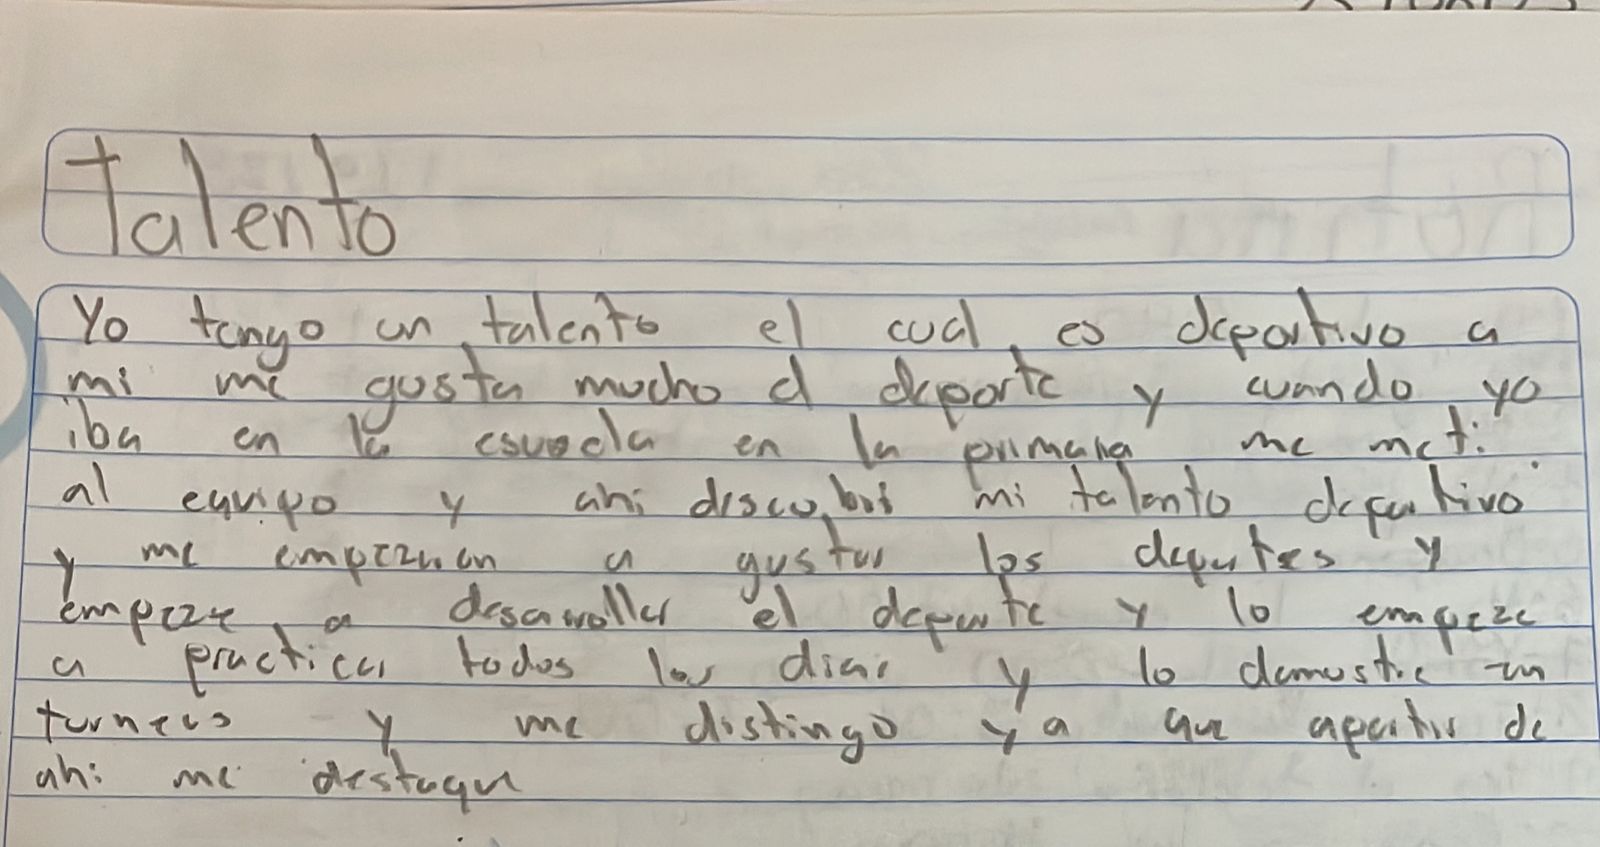 Talento
Yo tengo un talento el cual es deportivo a
mi me gusta mucho el deporte y cuando yo
iba en la escuela en la primaria me meti
al equipo y ahi descubri mi talento deportivo
y me empezaron a gustar los deportes y
empeze a desarroller el deporte y lo empeze
a practicar todos los dias y lo demostre en
torneos y me distingo ya que apartir de
ahi me destaque